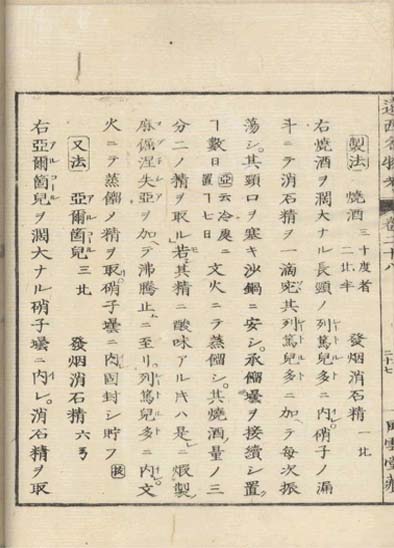 遠西名物考 卷二十八 二十七 風雲堂藏
製法 燒酒 三十度者 二比半 發烟消石精 一比
右燒酒ヲ濶大ナル長頸ノ列篤兒多ニ内レ硝子ノ漏
斗ニテ消石精ヲ一滴宛其列篤兒多ニ加ヘテ每次振
蕩シ其頸口ヲ塞キ沙鍋ニ安シ承僂嚢ヲ接續シ置
ヿ數日 亞云冷處ニ置ヿ七日 文火ニテ蒸餾シ其燒酒ノ量ノ三
分二ノ精ヲ取ル若其精ニ酸味アル片ハ是ニ煆製
麻倔涅失亞ヲ加ヘテ沸騰止ニ至リ列篤兒多ニ内文
火ニテ蒸餾ノ精ヲ取硝子嚢ニ内固封シ貯フ 扶
又法 亞爾箇兒 三比 發烟消石精 六ヲ
右亞爾箇兒ヲ濶大ナル硝子嚢ニ内レ消石精ヲ取